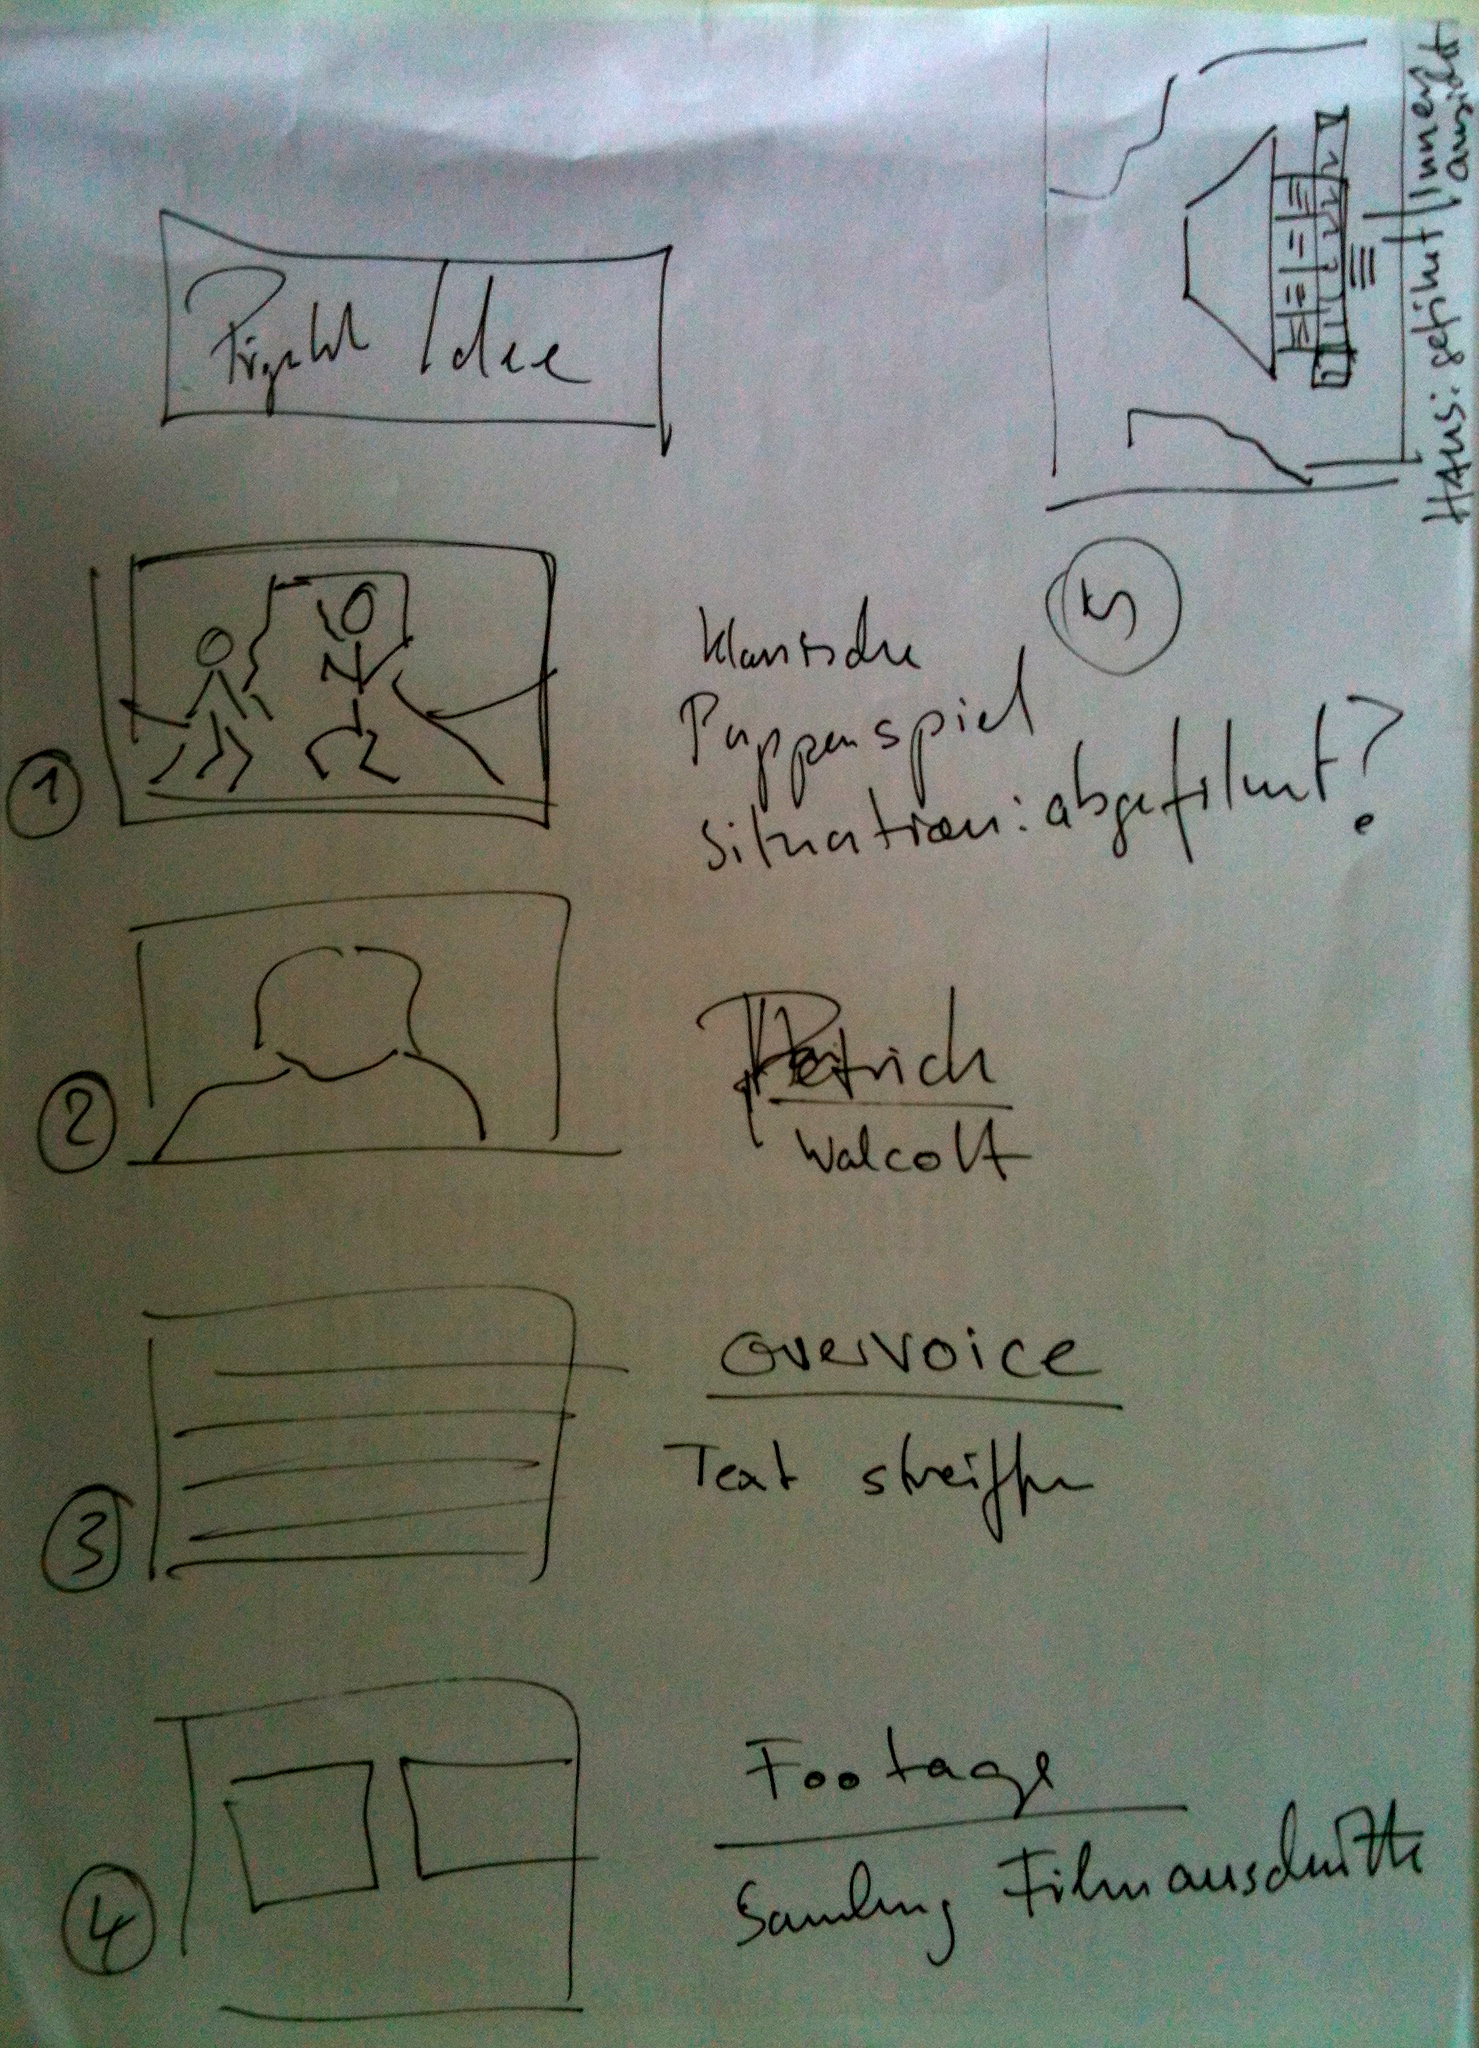 Projekt Idee
HAUS: gefilmt / Innen
ansicht
5
1
Klassische
Puppenspiel
Situation: abgefilmt?
2
Petrich
Walcott
3
Overvoice
Text streiffen
4
Footage
Samlung Filmausschnitte